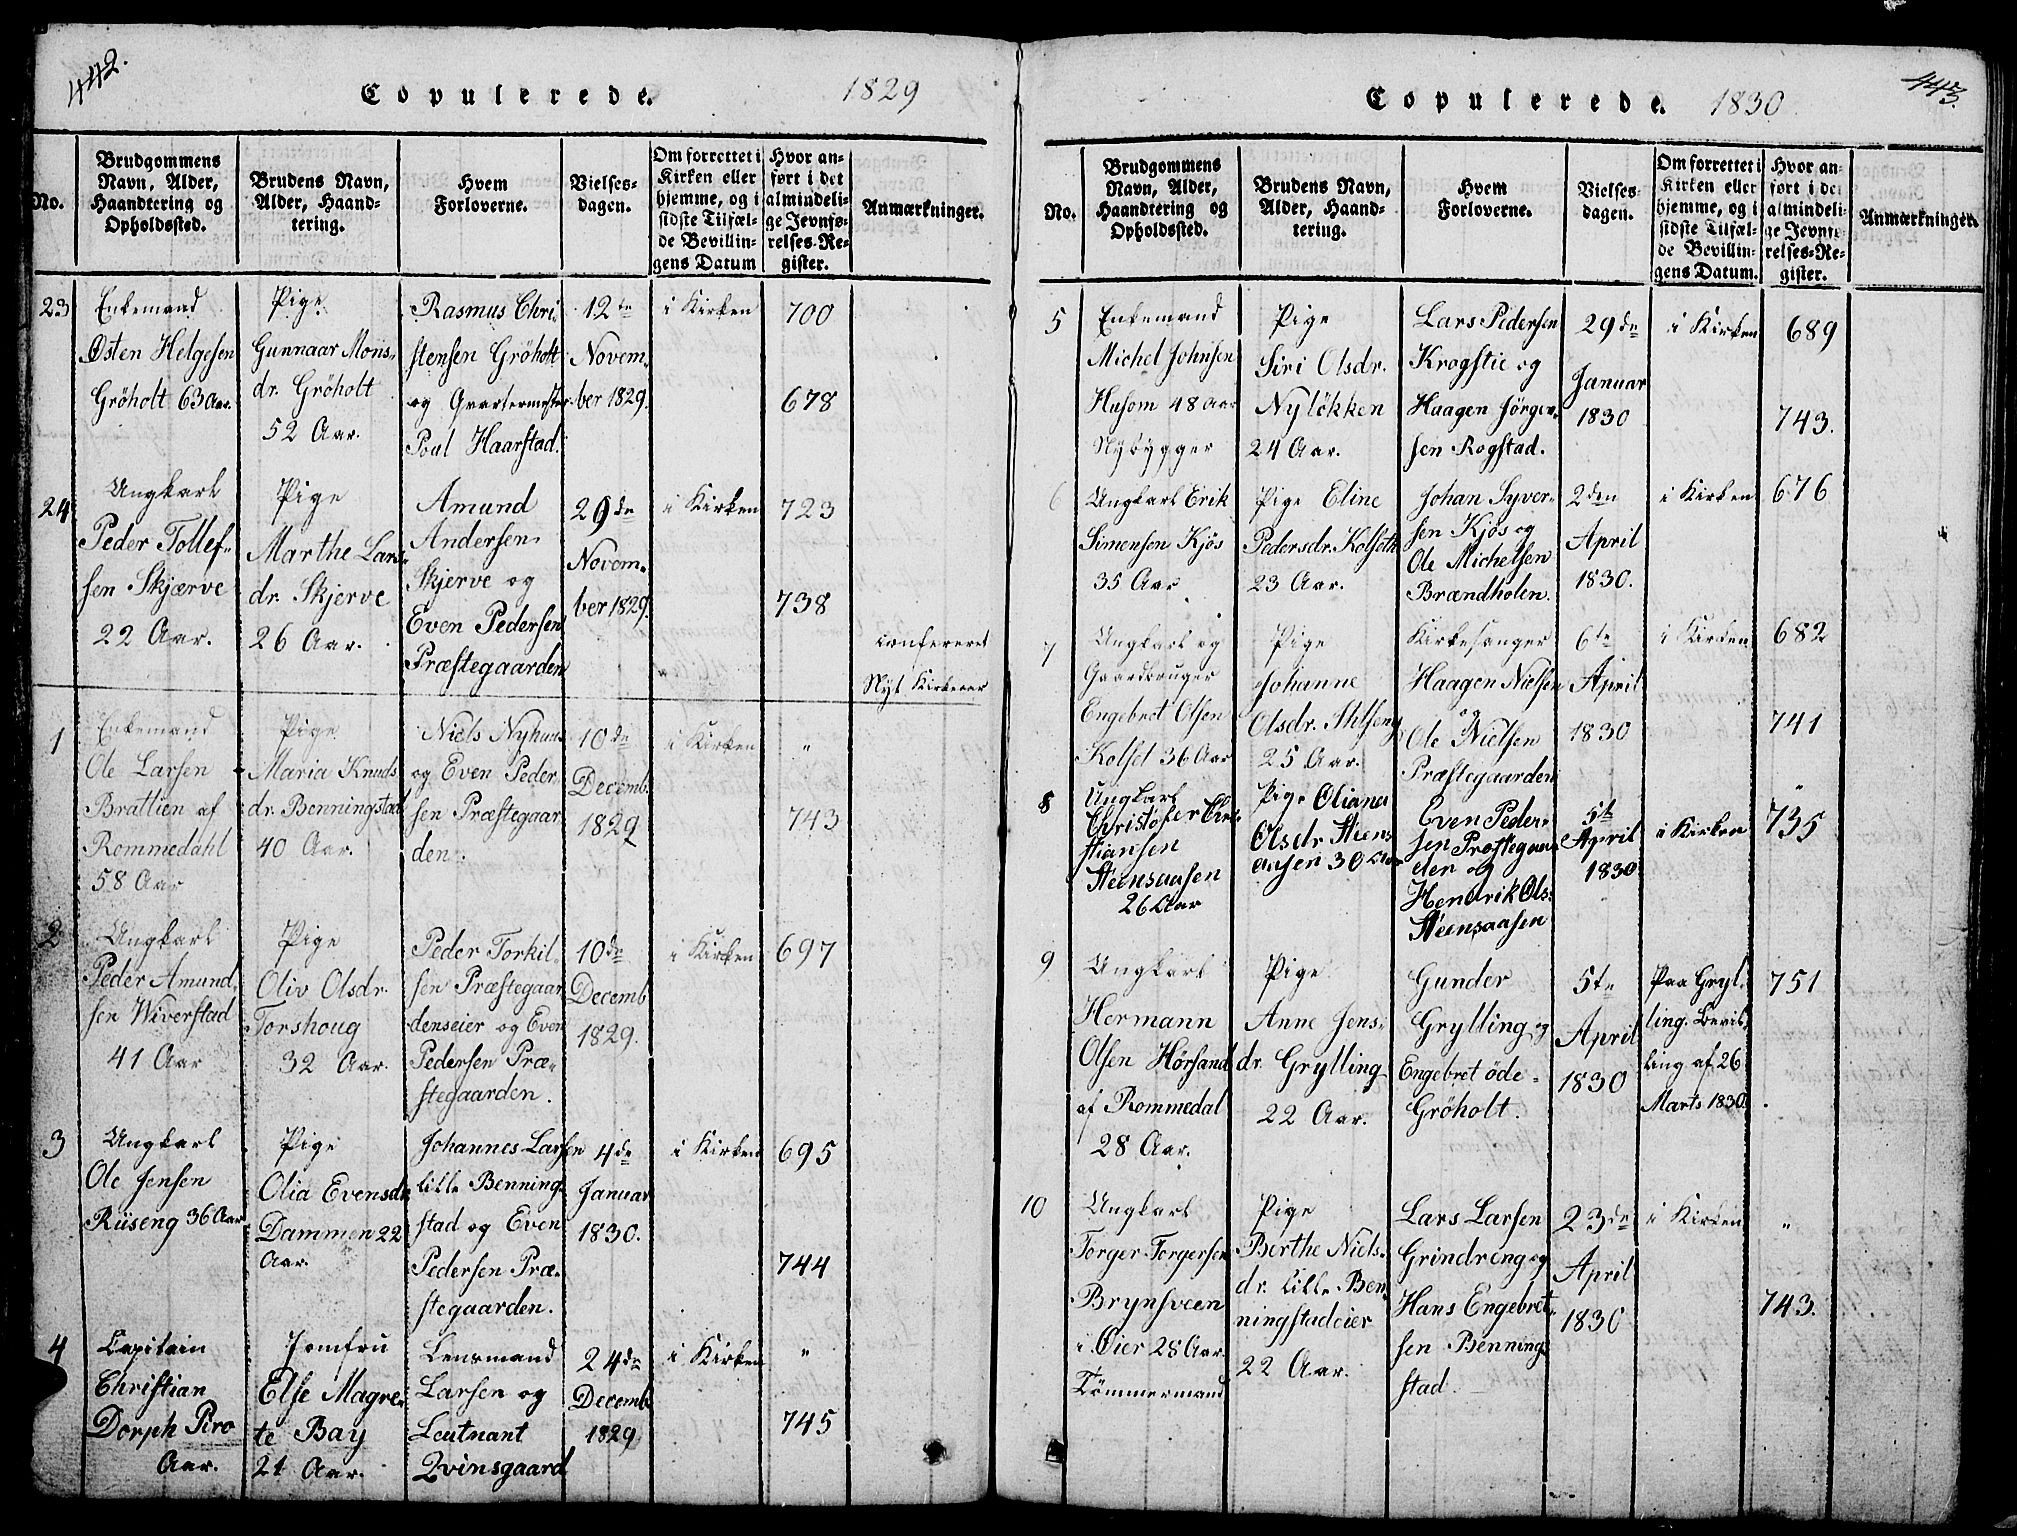 442.
Copulerede.
1829
No.
Brudgommens Navn, Alder, Haandtering og Opholdssted.
Brudens Navn, Alder, Haandtering.
Hvem Forloverne.
Vielsesdagen.
Om forrettet i Kirken eller hjemme, og i sidste Tilfælde Bevillingens Datum
Hvor anført i det almindelige Jevnførelses-Register.
Anmærkninger.
23
Enkemand
Østen Helgesen
Gröholt 63 Aar.
Pige
Gunnaar Mons-
dr. Gröholt
52 Aar.
Rasmus Chri-
stensen Gröholt
og Qvartermester
Poul Haarstad.
12te
Novem-
ber 1829.
i Kirken
700
678
24
Ungkarl
Peder Tollef-
sen Skjærve
22 Aar.
Pige
Marthe Lars-
dr. Skjerve
26 Aar.
Amund
Andersen
Skjerve og
Even Pedersen
Præstegaarden
29de
Novem-
ber 1829.
i Kirken
723
738
confereret
Nyt Kirkeaar
1
Enkemand
Ole Larsen
Brattlien af
Rommedahl
58 Aar
Pige
Maria Knuds
dr. Benningstad
40 Aar.
Niels Nyhuus
og Even Peder-
sen Præstegaar
den.
10de
Decemb.
1829
i Kirken
"
743
2
Ungkarl
Peder Amund-
sen Wiverstad
41 Aar
Pige
Oliv Olsdr.
Torshoug
32 Aar.
Peder Torkil-
sen Præstegaar
denseier og Even
Pedersen Præ-
stegaarden.
10de
Decemb
1829.
i Kirken
697
3
Ungkarl
Ole Jensen
Riiseng 36 Aar
Pige
Olia Evensdr
Dammen 22
Aar.
Johannes Larsen
lille Benning-
stad og Even
Pedersen Præ-
stegaarden.
4de
Januar
1830.
i Kirken
695
744
4
Capitain
Christian
Dorph Piro
Aar.
Jomfru
Else Magre-
te Bay
21 Aar.
Lensmand
Larsen og
Leutnant
Qvinsgaard
24de
Decemb
1829
i Kirken
"
745
443.
Copulerede.
1830
No.
Brudgommens Navn, Alder, Haandtering og Opholdssted.
Brudens Navn, Alder, Haandtering.
Hvem Forloverne.
Vielsesdagen.
Om forrettet i Kirken eller hjemme, og i sidste Tilfælde Bevillingens Datum.
Hvor anført i det almindelige Jevnførelses-Register.
Anmærkninger.
5
Enkemand
Michel Johnsen
Husom 48 Aar
Nybygger
Pige
Siri Olsdr.
Nylökken
24 Aar.
Lars Pedersen
Krogstie og
Haagen Jörgen-
sen Rogstad.
29de
Januar
1830
i Kirken
689
743.
6
Ungkarl Erik
Simensen Kjös
35 Aar
Pige Eline
Pedersdr. Kolseth
23 Aar.
Johan Syver-
sen Kjös og
Ole Michelsen
Brændholen.
2den
April
1830.
i Kirken
676
7
Ungkarl og
Gaardbruger
Engebret Olsen
Kolset 36 Aar
Pige
Johanne
Olsdr. Ahlseng
25 Aar.
Kirkesanger
Haagen Nielsen
og
Ole Nielsen
Præstegaarden
6te
April
1830
i Kirken
682
741
8
Ungkarl
Christofer Chri-
stiansen
Steensaasen
26 Aar
Pige Oliana
Olsdr Steens
aasen 30 Aar
Even Peder-
sen Præstegaar
den og
Hendrik Ols:
Steensaasen
5te
April
1830
i Kirken
"
735
9
Ungkarl
Hermann
Olsen Hörsand
af Rommedal
28 Aar.
Pige
Anne Jens-
dr. Grylling
22 Aar.
Gunder
Grylling og
Engebret öde-
Gröholt.
5te
April
1830
Paa Gryl-
ling. Bevil-
ling af 26
Marts 1830.
751
10
Ungkarl
Torger Torgersen
Brynsveen
i Øier 28 Aar.
Tömmermand
Pige
Berthe Niels-
dr. lille Ben-
ningstadeier
22 Aar.
Lars Larsen
Grindreng og
Hans Engebret-
sen Benning-
stad.
23de
April
1830
i Kirken
"
743.